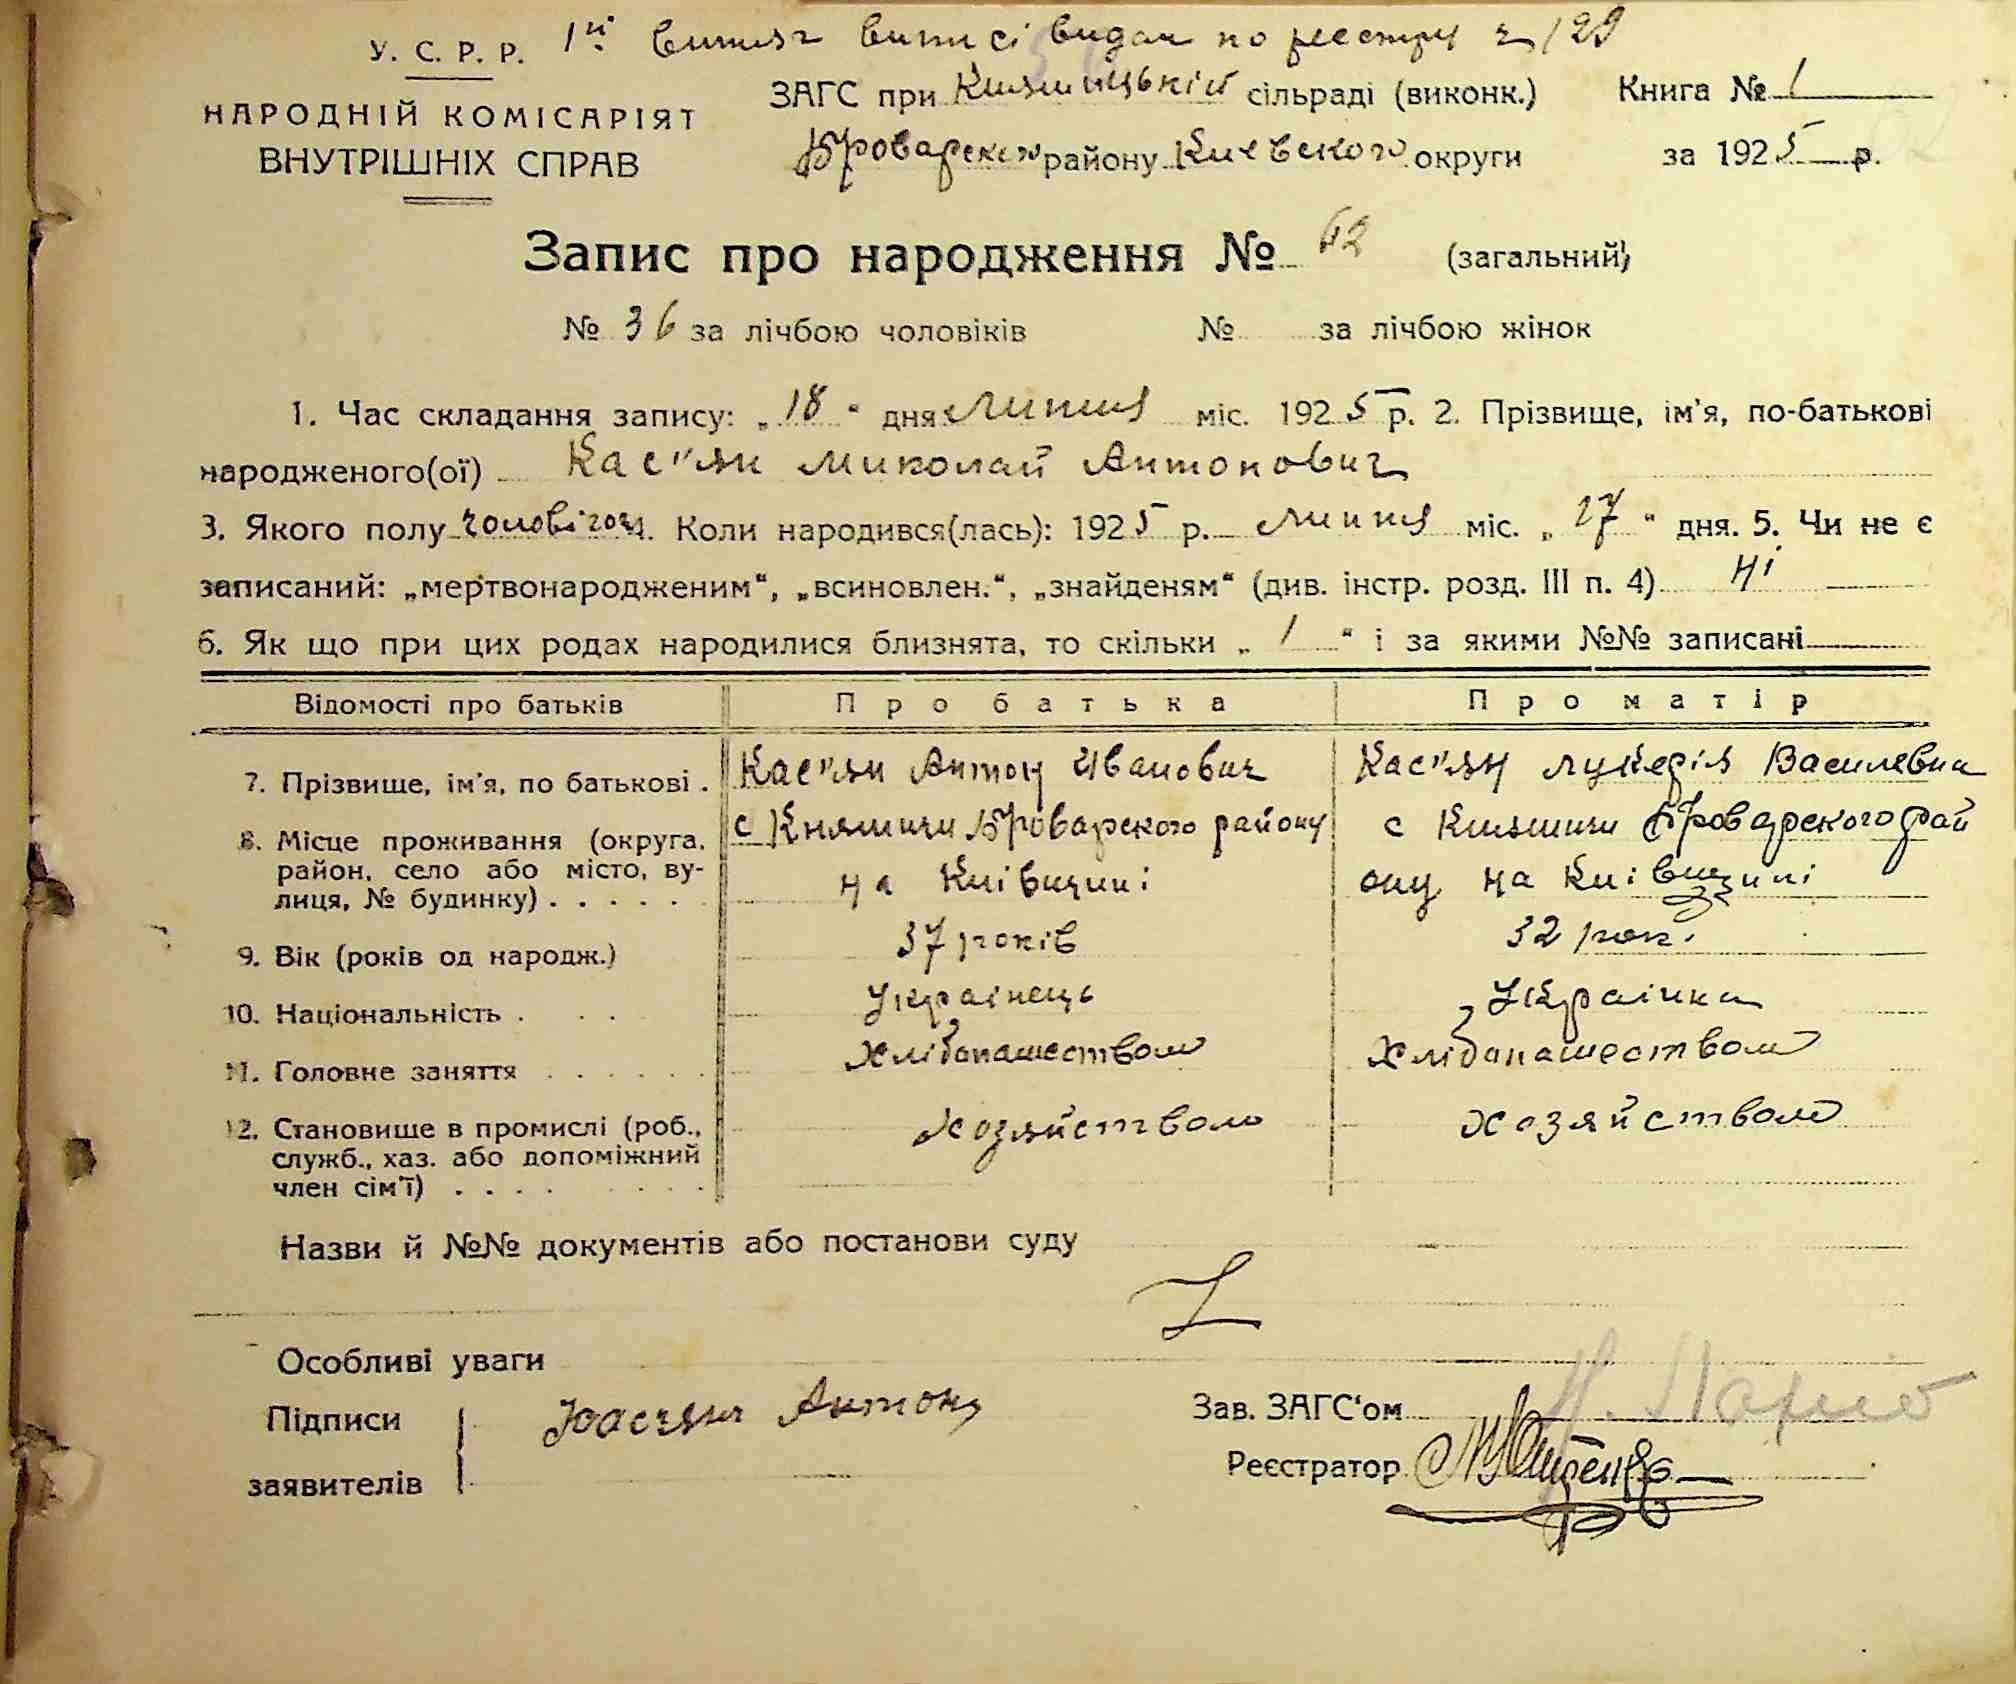 У. С. Р. Р. 1й витяг виписі видан по реєстру № 129
НАРОДНІЙ КОМІСАРІЯТ
ВНУТРІШНІХ СПРАВ
ЗАГС при Княжицькій сільраді (виконк.) Книга № 1
Броварського району Киевского округи за 1925 р.
Запис про народження № 62 (загальний)
№ 36 за лічбою чоловіків № за лічбою жінок
1. Час складання запису: „18“ дня липня міс. 1925 р. 2. Прізвище, ім'я, по-батькові
народженого(ої) Кас"ян Миколай Антонович
3. Якого полу чоловічого. Коли народився(лась): 1925 р. липня міс. „17“ дня. 5. Чи не є
записаний: „мертвонародженим“, „всиновлен.“, „знайденям“ (див. інстр. розд. III п. 4) Ні
6. Як що при цих родах народилися близнята, то скільки „1“ і за якими №№ записані
Відомості про батьків Про батька Про матір
7. Прізвище, ім'я, по батькові . Кас"ян Антон Іванович Кас"ян Лукерія Василевна
8. Місце проживання (округа, район, село або місто, вулиця, № будинку) . . . . . .
с Княжичи Броварского району
на Київщині
с Княжичи Броварского рай
ону на Київщині
9. Вік (років од народж.) 37 років 32 роки
10. Національність . . . . Українець Українка
11. Головне заняття . . . . . . Хлібопашеством Хлібопашеством
12. Становище в промислі (роб., служб., хаз. або допоміжний член сім'ї) . . . .
Хозяйством Хозяйством
Назви й №№ документів або постанови суду
Особливі уваги
Підписи
заявителів
Касьян Антон
Зав. ЗАГС'ом
Реєстратор